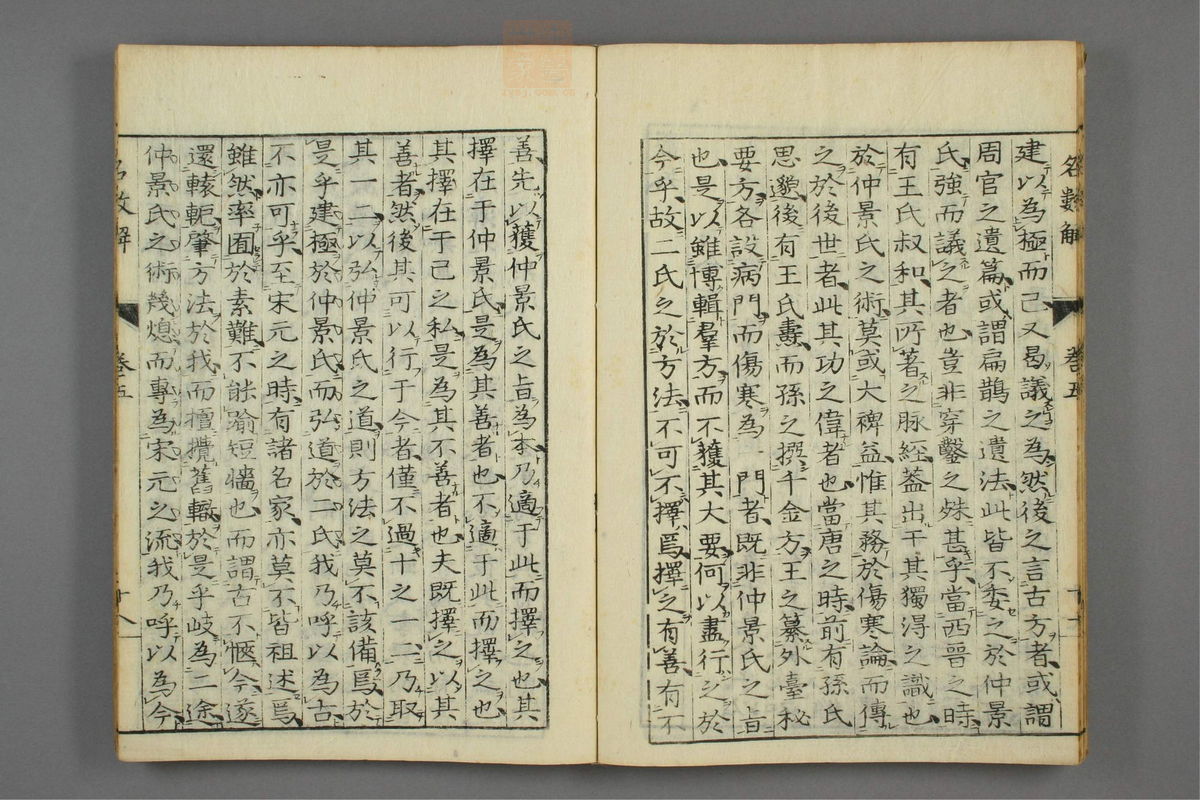 名數解 卷五
建以為極而已又曷議之為然後之言古方者或謂
周官之遺篇或謂扁鵲之遺法此皆不委之於仲景
氏強而議之者也豈非穿鑿之殊甚乎當西晉之時
有王氏叔和其所著之脉經蓋出于其獨淂之識也
於仲景氏之術莫或大裨益惟其務於傷寒論而傳
之於後世者此其功之偉者也當唐之時前有孫氏
思邈後有王氏燾而孫之撰千金方王之纂外臺秘
要方各設病門而傷寒為一門者既非仲景氏之旨
也是以雖博輯羣方而不獲其大要何以盡行之於
今乎故二氏之於方法不可不擇焉擇之有善有不
善先以獲仲景氏之旨為本乃適于此而擇之也其
擇在于仲景氏是為其善者也不適于此而擇之也
其擇在于己之私是為其不善者也夫既擇之以其
善者然後其可以行于今者僅不過十之一二乃取
其一二以弘仲景氏之道則方法之莫不該備焉於
是乎建極於仲景氏而弘道於二氏我乃呼以為古
不亦可乎至宋元之時有諸名家亦莫不皆祖述焉
雖然率囿於素難不能踰短墻也而謂古不愜今遂
還轅軛肇方法於我而擅攬舊轍於是乎岐為二途
仲景氏之術幾熄而專為宋元之流我乃呼以為今
名數解 卷五